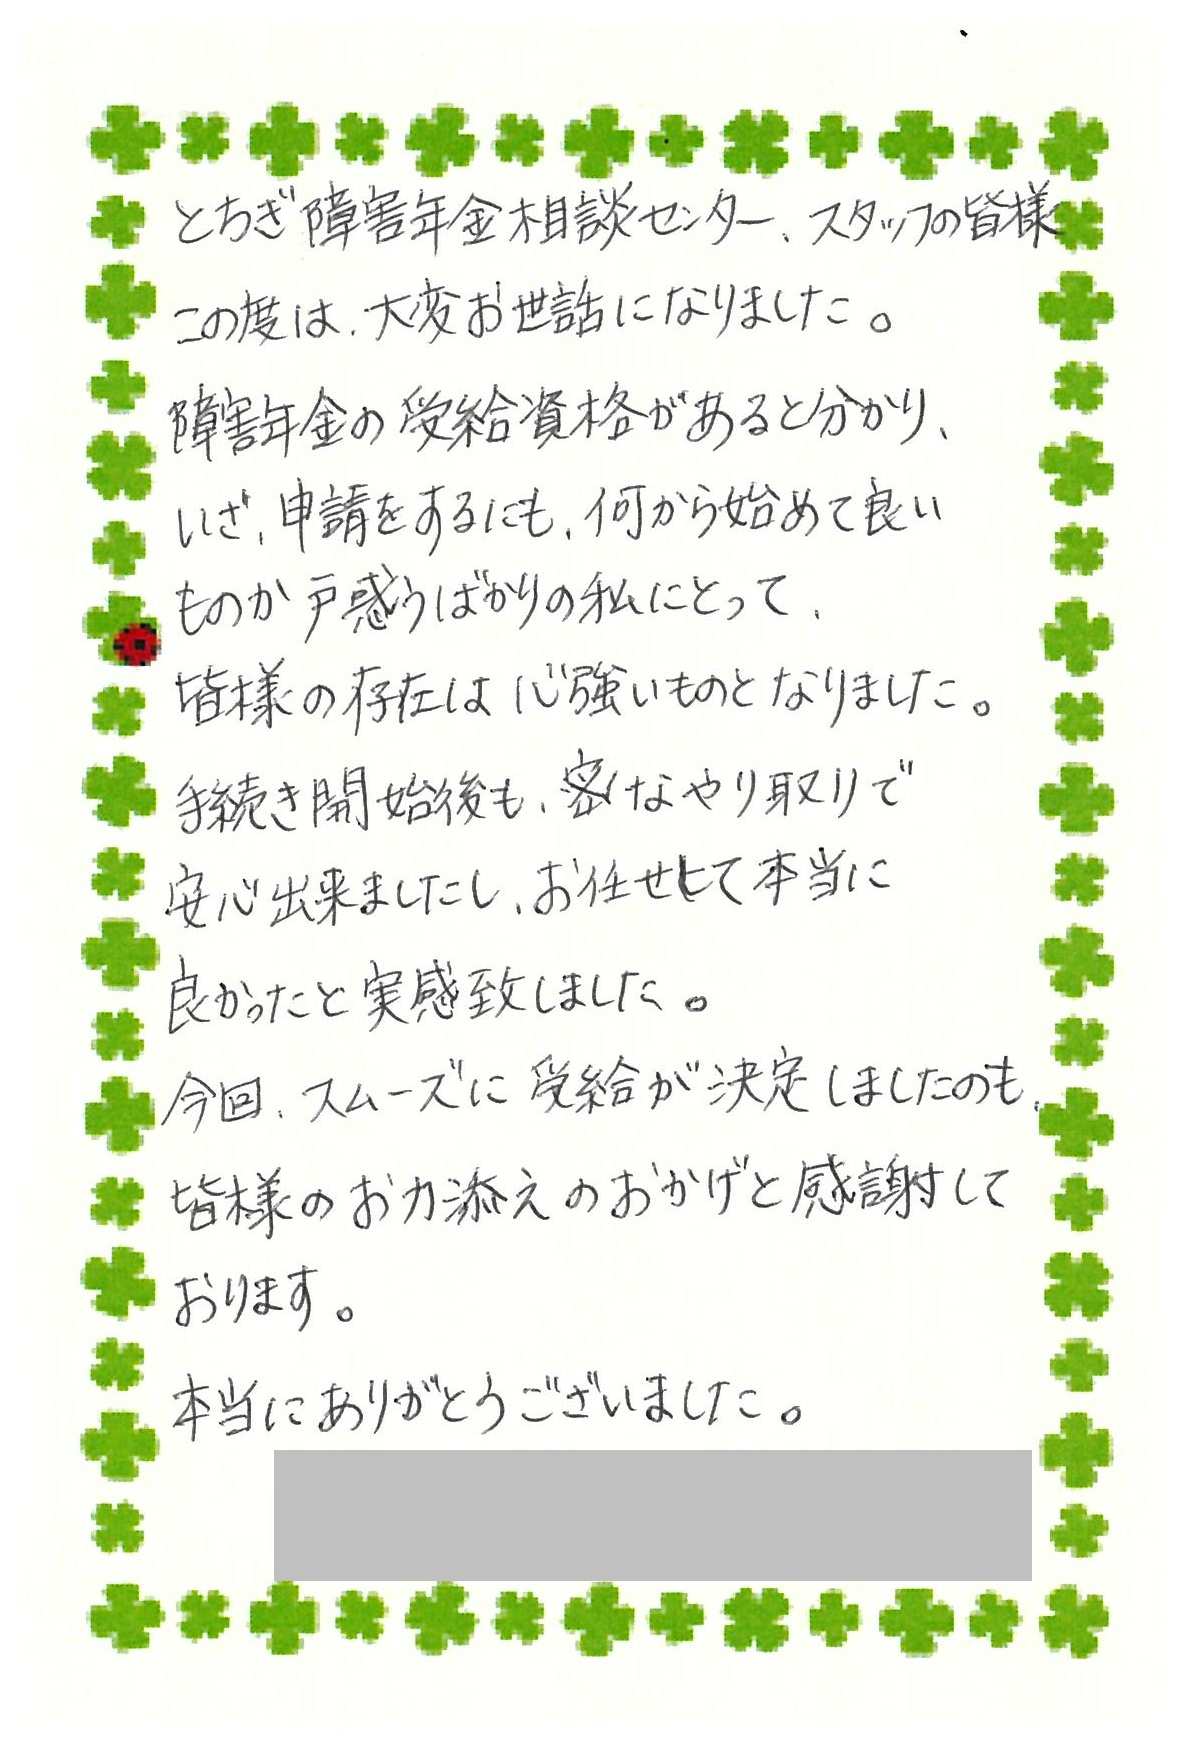 とちぎ障害年金相談センター、スタッフの皆様
この度は、大変お世話になりました。
障害年金の受給資格があると分かり、
いざ、申請をするにも、何から始めて良い
ものか戸惑うばかりの私にとって、
皆様の存在は心強いものとなりました。
手続き開始後も、密なやり取りで
安心出来ましたし、お任せして本当に
良かったと実感致しました。
今回、スムーズに受給が決定しましたのも、
皆様のお力添えのおかげと感謝して
おります。
本当にありがとうございました。